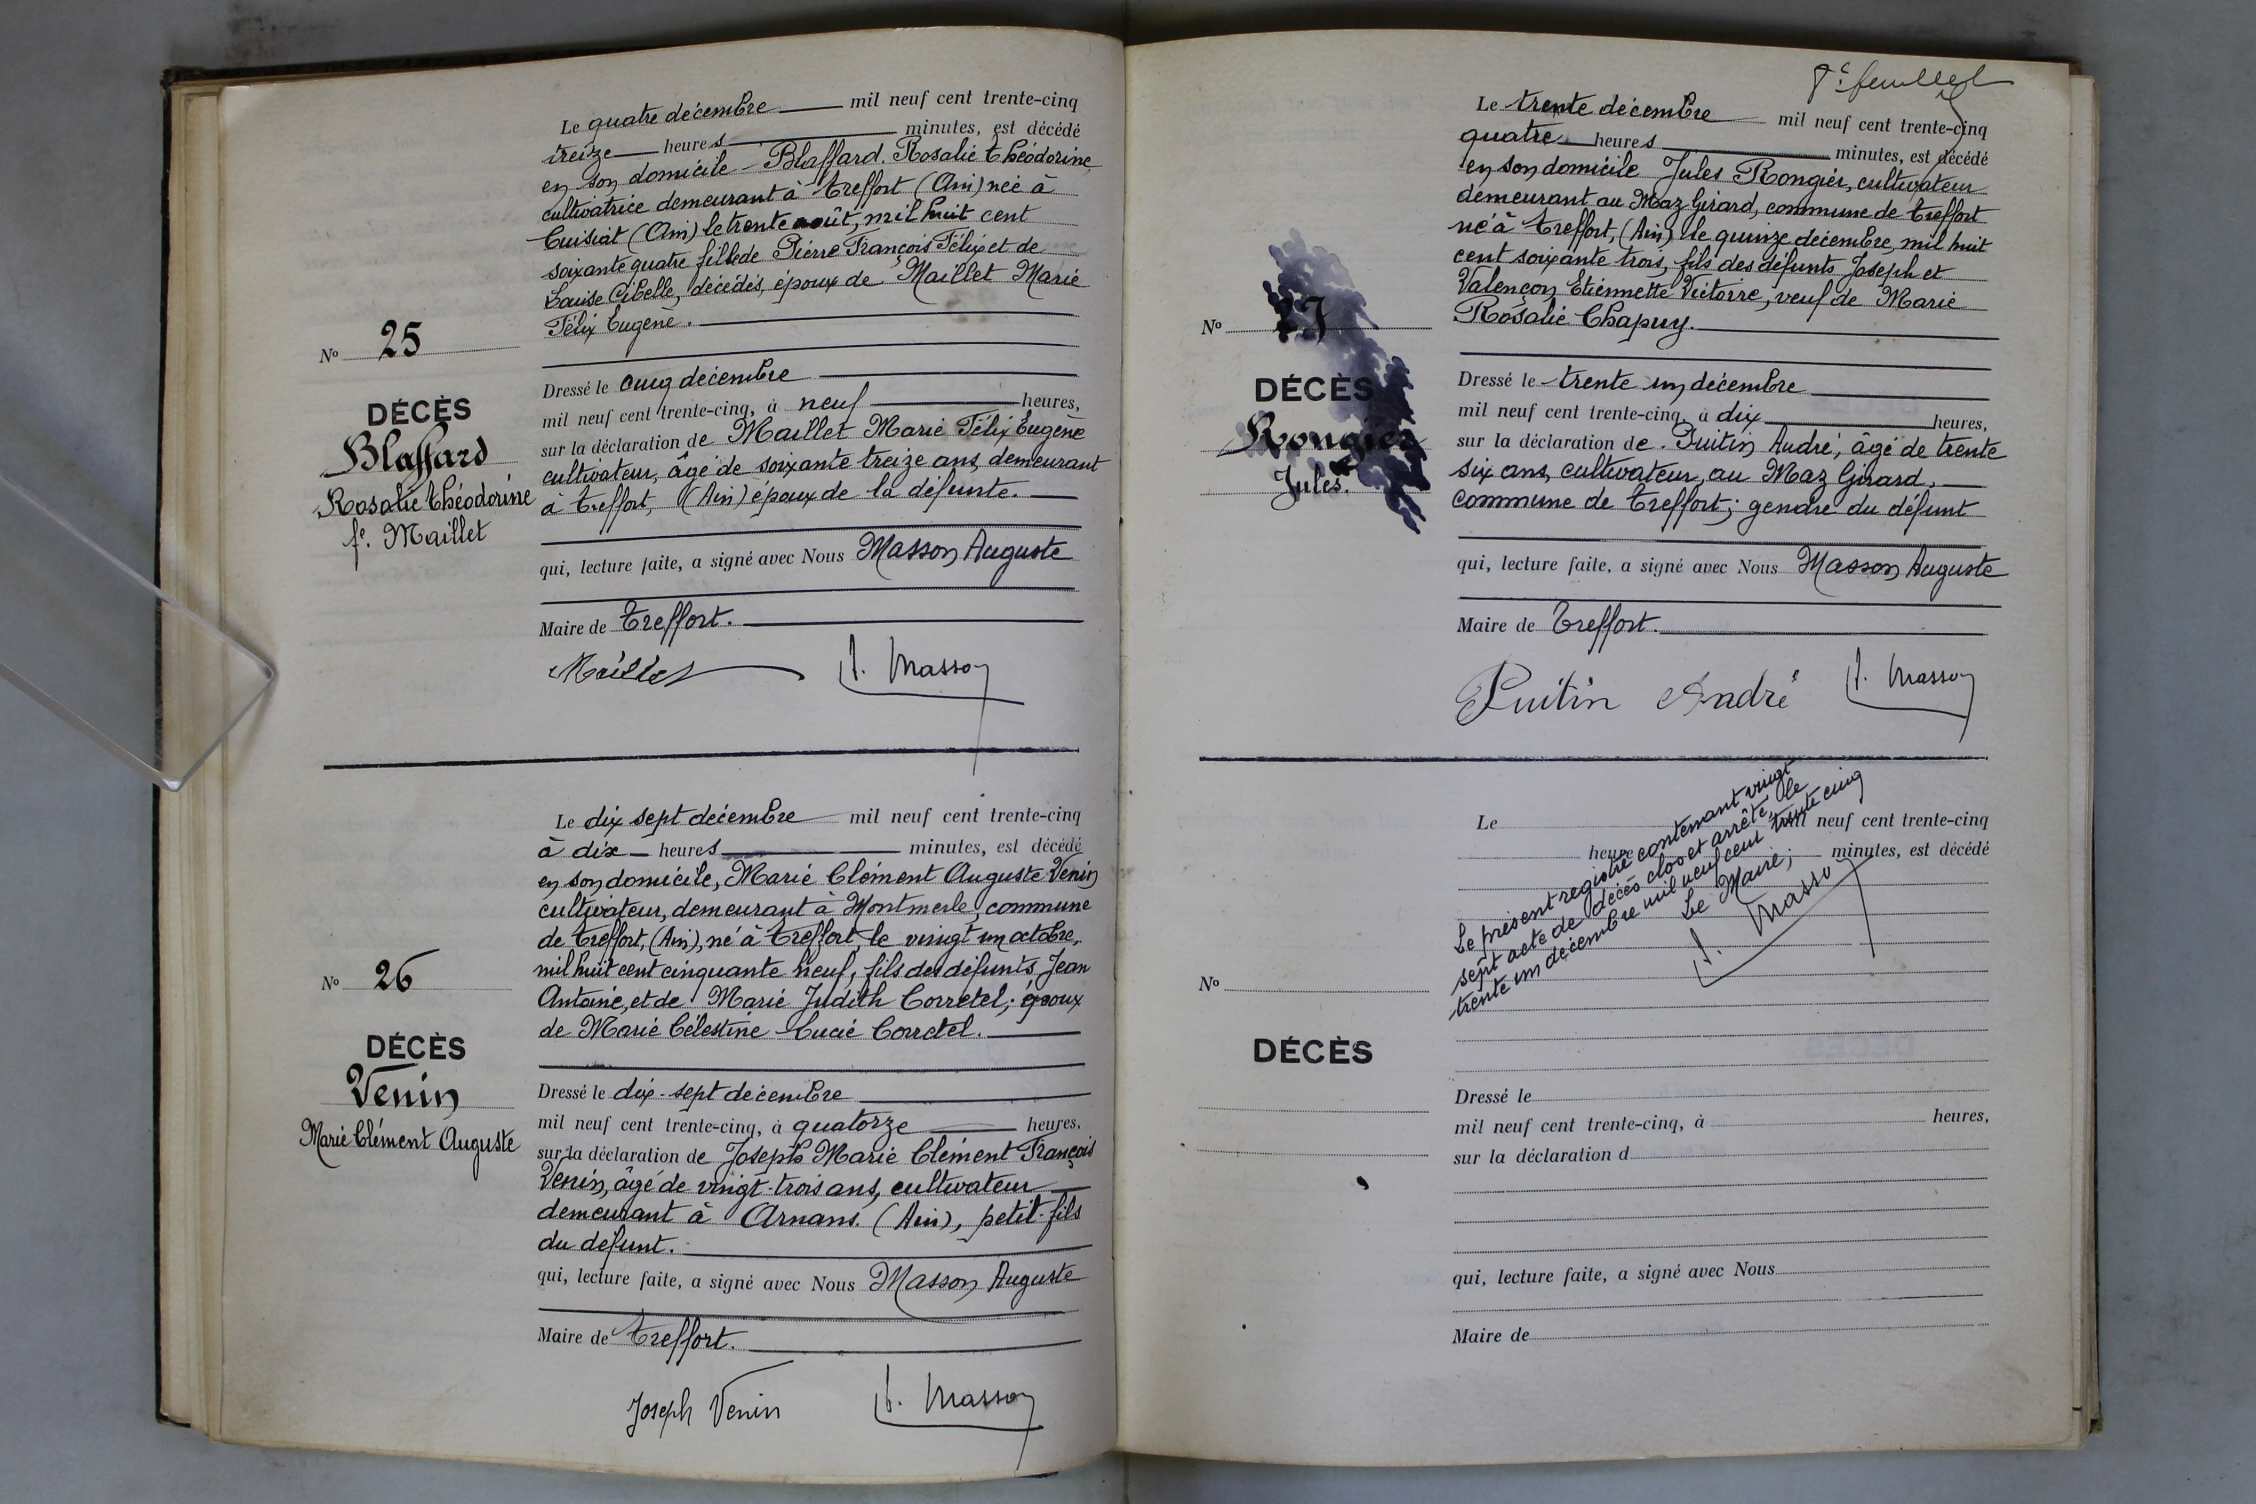 Le quatre décembre mil neuf cent trente-cinq
treize heures minutes, est décédé
en son domicile Blaffard Rosalie Théodorine
cultivatrice demeurant à Treffort (Ain) née à
Cuisiat (Ain) le trente août, mil huit cent
soixante quatre fille de Pierre François Félix et de
Louise Cibelle, décédés, époux de Maillet Marie
Félix Eugène.
No 25
DÉCÈS
Blaffard
Rosalie Théodorine
fe. Maillet
Dressé le cinq décembre
mil neuf cent trente-cinq, à neuf heures,
sur la déclaration de Maillet Marie Félix Eugène
cultivateur, âgé de soixante treize ans, demeurant
à Treffort, (Ain) époux de la défunte.
qui, lecture faite, a signé avec Nous Masson Auguste
Maire de Treffort.
Maillet A. Masson
Le dix sept décembre mil neuf cent trente-cinq
à dix heures minutes, est décédé
en son domicile, Marie Clément Auguste Venin
cultivateur, demeurant à Montmerle, commune
de Treffort, (Ain), né à Treffort, le vingt un octobre,
mil huit cent cinquante neuf, fils des défunts Jean
Antoine, et de Marie Judith Corretel, époux
de Marie Célestine Lucie Corretel.
No 26
DÉCÈS
Venin
Marie Clément Auguste
Dressé le dix-sept décembre
mil neuf cent trente-cinq, à quatorze heures,
sur la déclaration de Joseph Marie Clément François
Venin, âgé de vingt-trois ans, cultivateur
demeurant à Arnans (Ain), petit-fils
du défunt.
qui, lecture faite, a signé avec Nous Masson Auguste
Maire de Treffort.
Joseph Venin A. Masson
8e. feuillet
Le trente décembre mil neuf cent trente-cinq
quatre heures minutes, est décédé
en son domicile Jules Rongier, cultivateur
demeurant au Maz Girard, commune de Treffort
né à Treffort, (Ain) le quinze décembre, mil huit
cent soixante trois, fils des défunts Joseph et
Valençon Etiennette Victorre, veuf de Marie
Rosalie Chapuy.
No 27
DÉCÈS
Rongier
Jules.
Dressé le trente un décembre
mil neuf cent trente-cinq, à dix heures,
sur la déclaration de Puitin André, âgé de trente
six ans, cultivateur, au Maz Girard,
commune de Treffort; gendre du défunt
qui, lecture faite, a signé avec Nous Masson Auguste
Maire de Treffort.
Puitin André A. Masson
Le mil neuf cent trente-cinq
heure minutes, est décédé
Le présent registre contenant vingt
sept acte de décès clos et arrêté, le
trente un décembre mil neuf cent trente cinq
Le Maire,
A. Masson
No
DÉCÈS
Dressé le
mil neuf cent trente-cinq, à heures,
sur la déclaration d
qui, lecture faite, a signé avec Nous
Maire de